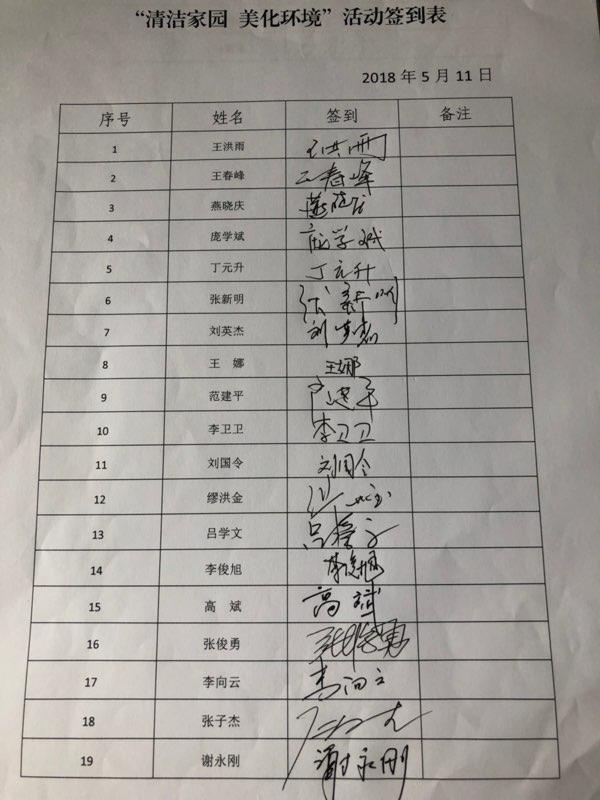 “清洁家园 美化环境”活动签到表
2018 年 5 月 11 日
序号 姓名 签到 备注
1 王洪雨 王洪雨
2 王春峰 王春峰
3 燕晓庆 燕晓庆
4 庞学斌 庞学斌
5 丁元升 丁元升
6 张新明 张新明
7 刘英杰 刘英杰
8 王 娜 王娜
9 范建平 范建平
10 李卫卫 李卫卫
11 刘国令 刘国令
12 缪洪金
13 吕学文 吕学文
14 李俊旭 李俊旭
15 高 斌 高斌
16 张俊勇 张俊勇
17 李向云 李向云
18 张子杰
19 谢永刚 谢永刚